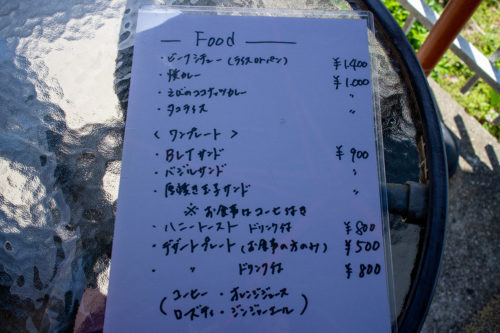 Food
・ビーフシチュー (ライスorパン) ¥1.400
・豚カレー ¥1.000
・えびのココナッツカレー 〃
・タコライス 〃
< ワンプレート >
・BLTサンド ¥900
・バジルサンド 〃
・厚焼き玉子サンド 〃
※ お食事はコーヒー付き
・ハニートースト ドリンク付 ¥800
・デザートプレート (お食事の方のみ) ¥500
・ 〃 ドリンク付 ¥800
(コーヒー ・オレンジジュース
ローズティ・ジンジャーエール)